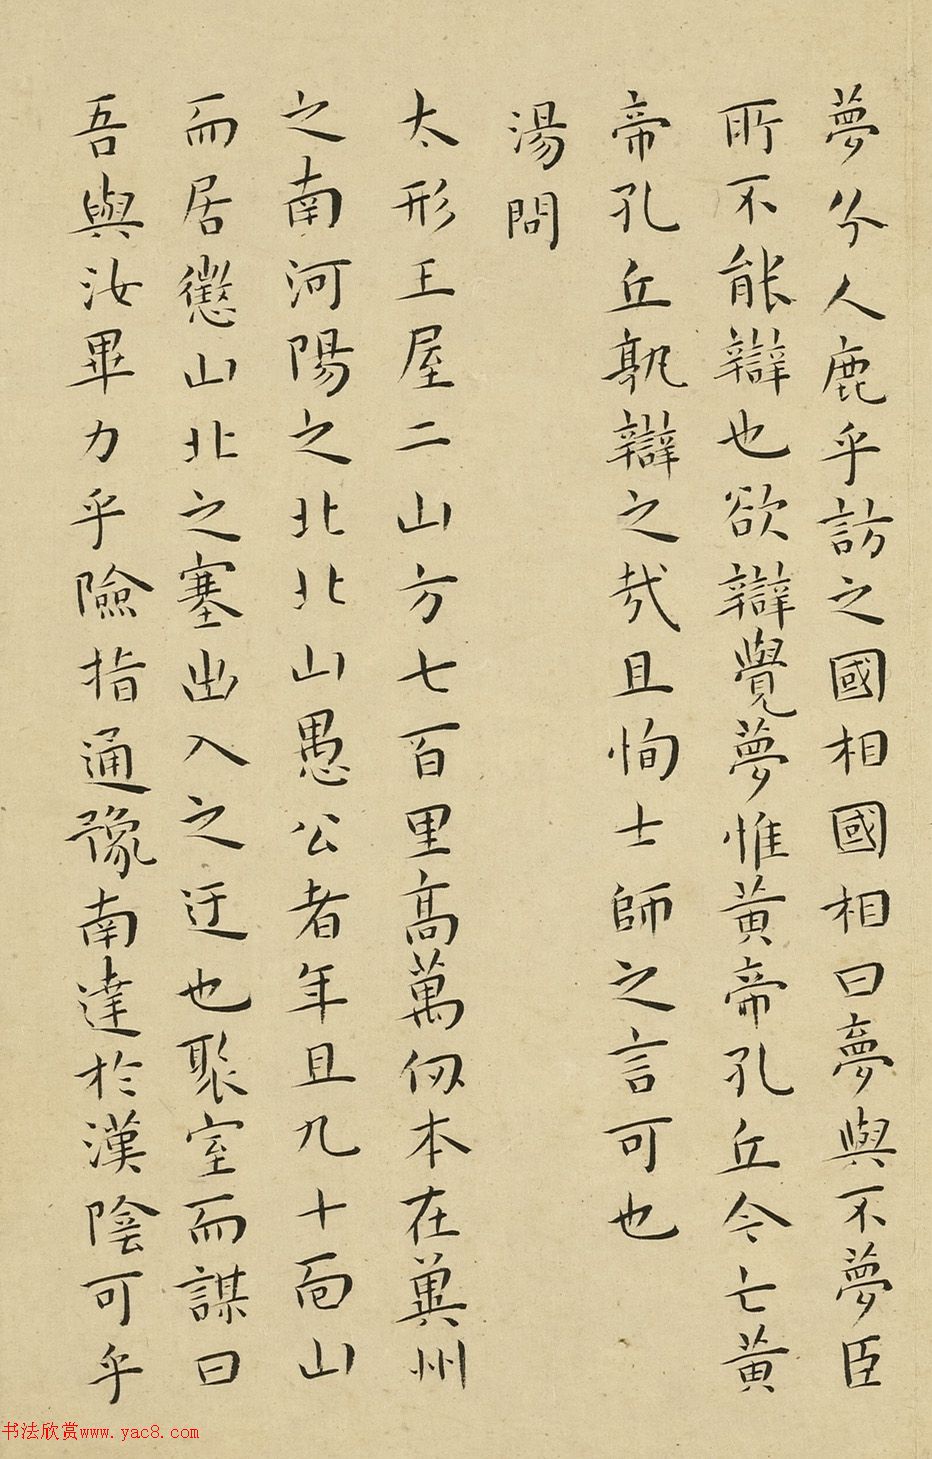 夢分人鹿乎訪之國相國相曰夢與不夢臣
所不能辯也欲辯覺夢惟黃帝孔丘今亡黃
帝孔丘孰辯之哉且恂士師之言可也
湯問
太形王屋二山方七百里高萬仞本在冀州
之南河陽之北北山愚公者年且九十面山
而居懲山北之塞出入之迂也聚室而謀曰
吾與汝畢力乎險指通豫南達於漢陰可乎
书法欣赏www.yac8.com